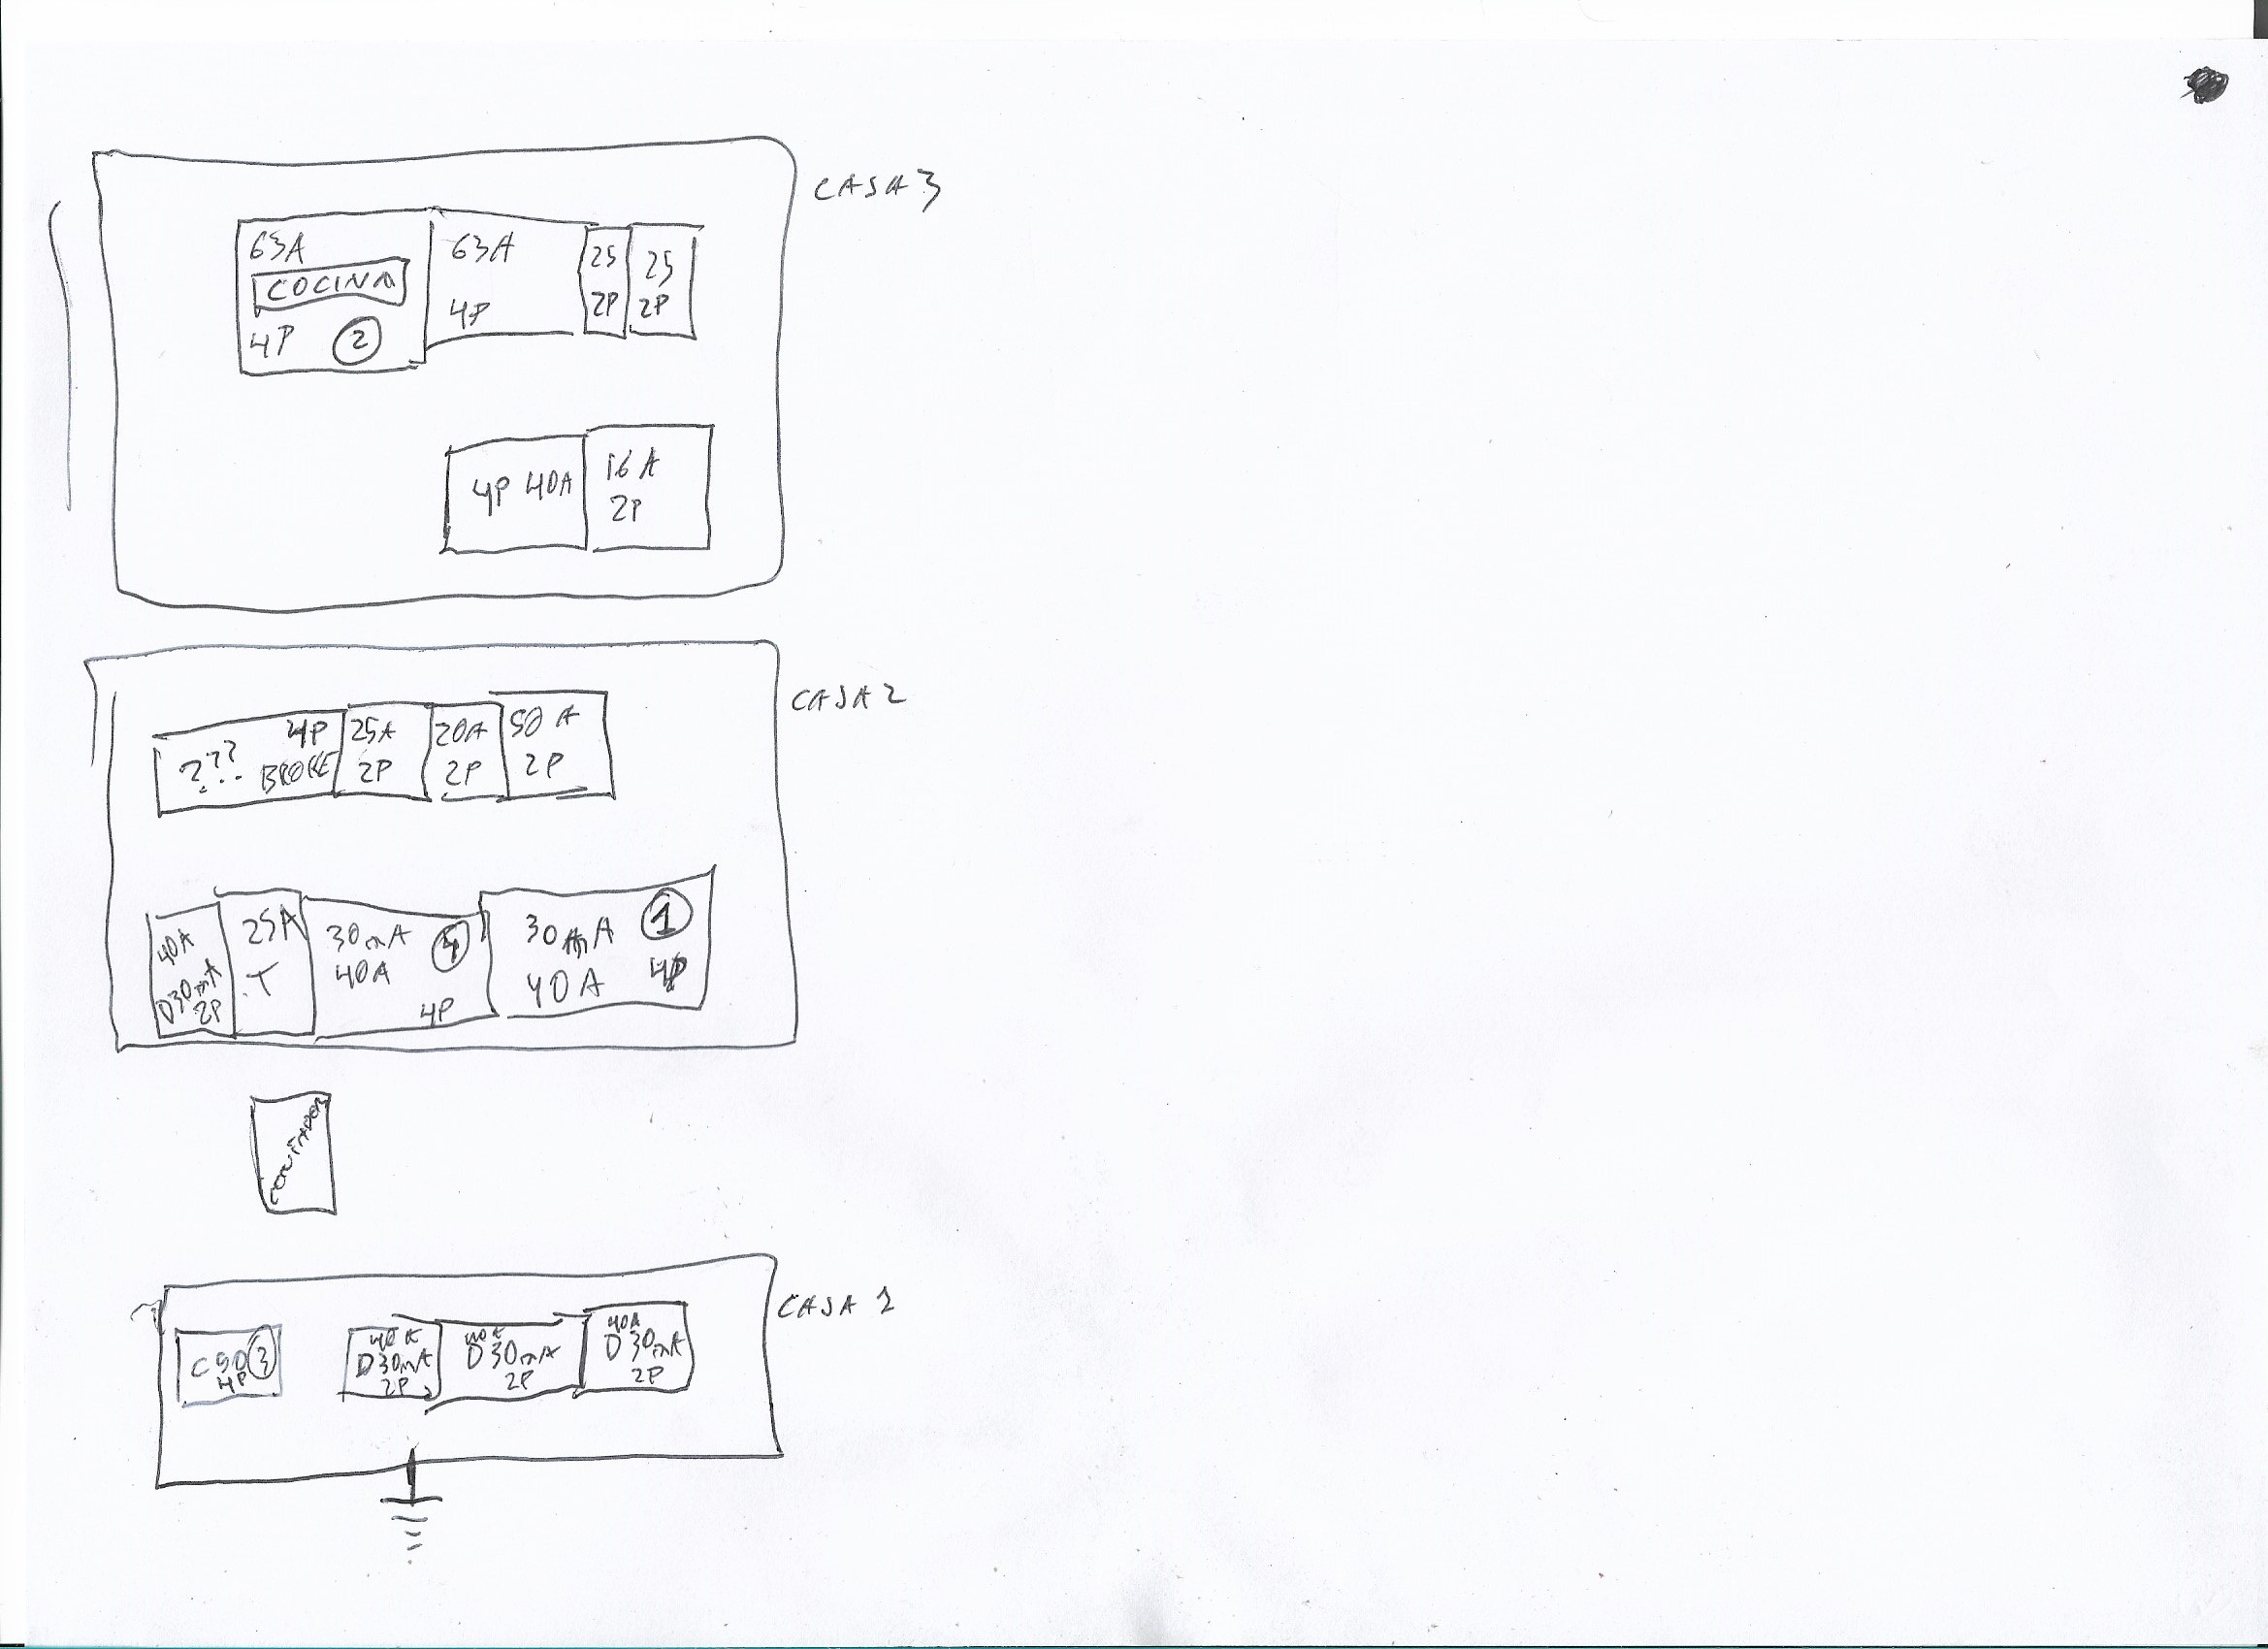 CASA 3
63A
COCINA
4P 2
63A
4P
25
2P
25
2P
4P 40A
16 A
2P
CASA 2
???
4P
BROKE
25A
2P
20A
2P
50 A
2P
40A
D30mA
2P
25A
T
30mA
40A
4P
30mA 1
40A 4P
CASA 1
C50 3
4P
40A
D30mA
2P
40A
D30mA
2P
40A
D30mA
2P